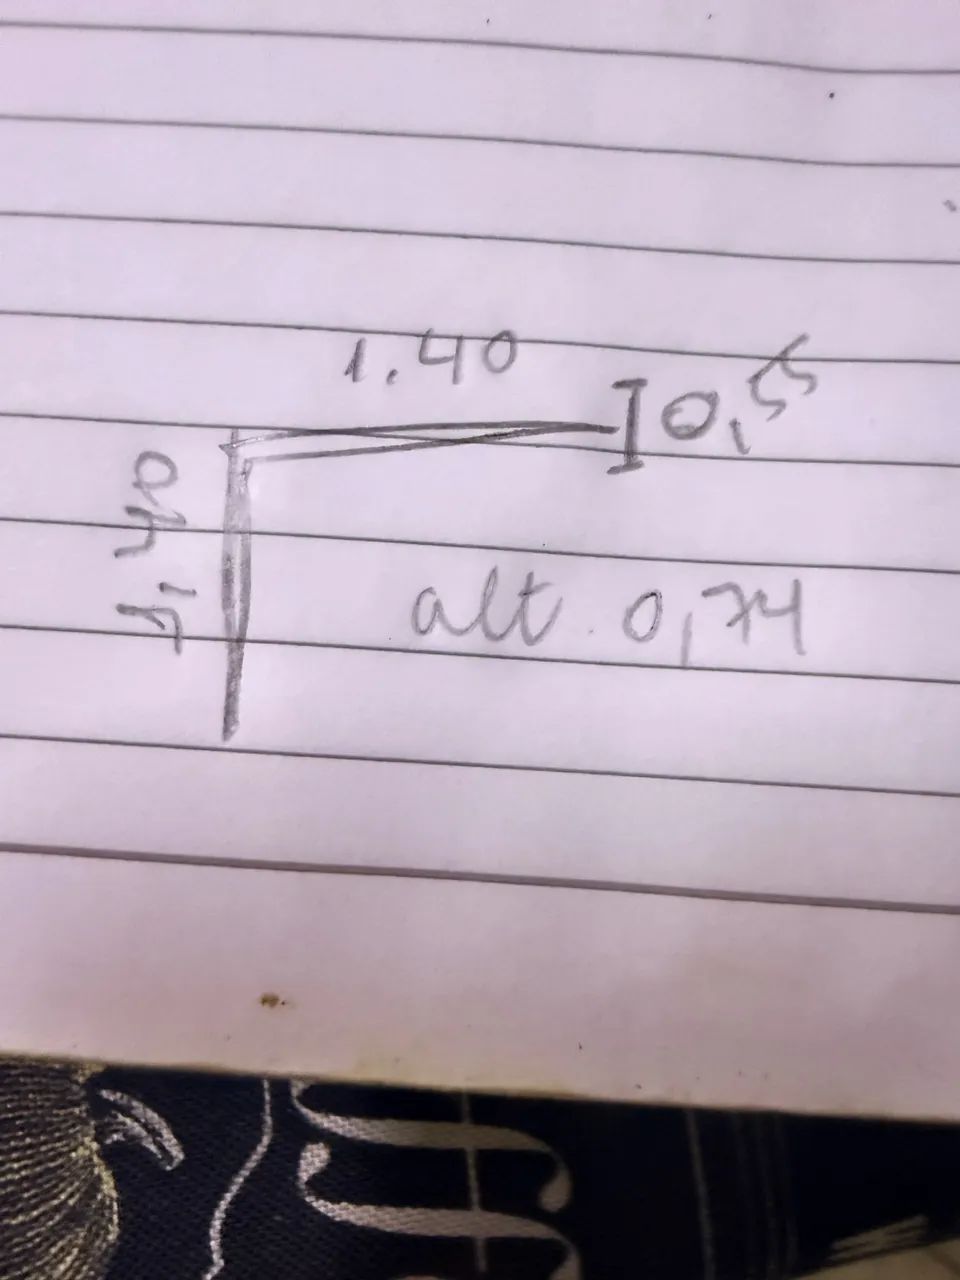 1.40
0,55
1,40
alt. 0,74